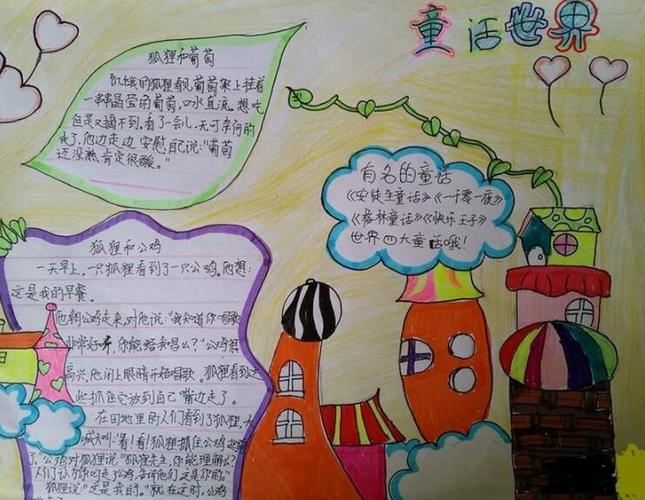 童话世界
狐狸和葡萄
饥饿的狐狸看见葡萄架上挂着
一串串晶莹的葡萄,口水直流,想吃
但是又摘不到。看了一会儿,无可奈何的
走了,他边走边安慰自己说:"葡萄
还没熟,肯定很酸。"
有名的童话
《安徒生童话》《一千零一夜》
《格林童话》《快乐王子》
世界四大童话哦!
狐狸和公鸡
一天早上,一只狐狸看到了一只公鸡。他想:
这是我的早餐。
他朝公鸡走来,对他说:"我知道你唱歌
非常好听,你能唱给我吗么?"公鸡很
高兴,他闭上眼睛开始唱歌。狐狸看到这
些抓住它放到自己嘴边走了。
在田地里的人们看到了狐狸,大
喊大叫:"看!看!狐狸抓住公鸡逃
了。"公鸡对狐狸说:"狐狸先生,你能理解么?
人们认为你叼走公鸡,告诉他们这是你的。"
狐狸说:"这是我的。"就在这时,公鸡